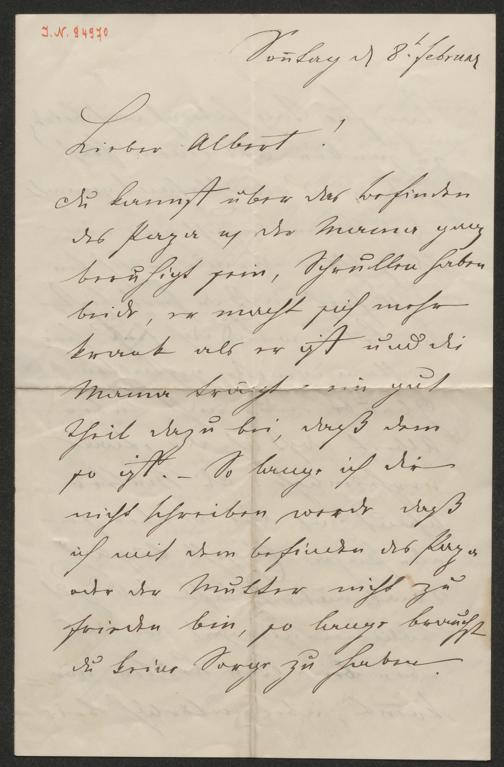 J.N. 94970
Sonntag d 8t. Februar
Lieber Albert!
du kannst über das befinden
des Papa u der Mama ganz
beruhigt sein, Schrullen haben
beide, er macht sich mehr
krank als er ist und die
Mama trägt ein gut
Theil dazu bei, daß dem
so ist. – So lange ich dir
nicht schreiben werde daß
ich mit dem befinden des Papa
oder der Mutter nicht zu
frieden bin, so lange brauchst
du keine Sorge zu haben.